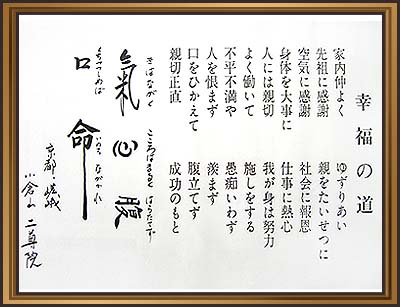 幸福の道
家内仲よく ゆずりあい
先祖に感謝 親をたいせつに
空気に感謝 社会に報恩
身体を大事に 仕事に熱心
人には親切 我が身は努力
よく働いて 施しをする
不平不満や 愚痴いわず
人を恨まず 羨まず
口をひかえて 腹立てず
親切正直 成功のもと
きはながく こころはまるく はらたてず
氣 心 腹
くちつつしめば いのちながかれ
口 命
京都 嵯峨
小倉山 二尊院